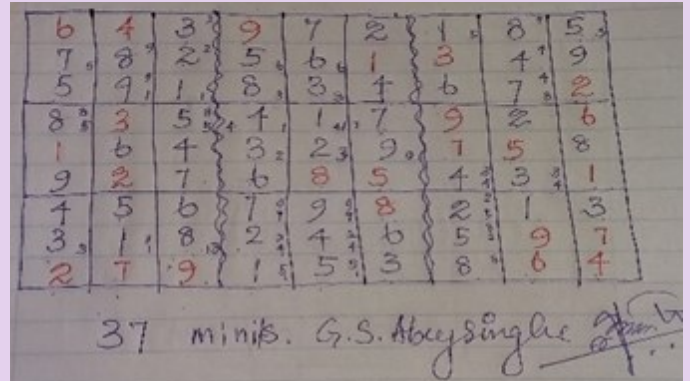 6 4 3 9 7 2 1 8 5
7 8 2 5 6 1 3 4 9
5 9 1 8 3 4 6 7 2
8 3 5 4 1 7 9 2 6
1 6 4 3 2 9 7 5 8
9 2 7 6 8 5 4 3 1
4 5 6 7 9 8 2 1 3
3 1 8 2 4 6 5 9 7
2 7 9 1 5 3 8 6 4
37 minits. G.S. Abeysinghe